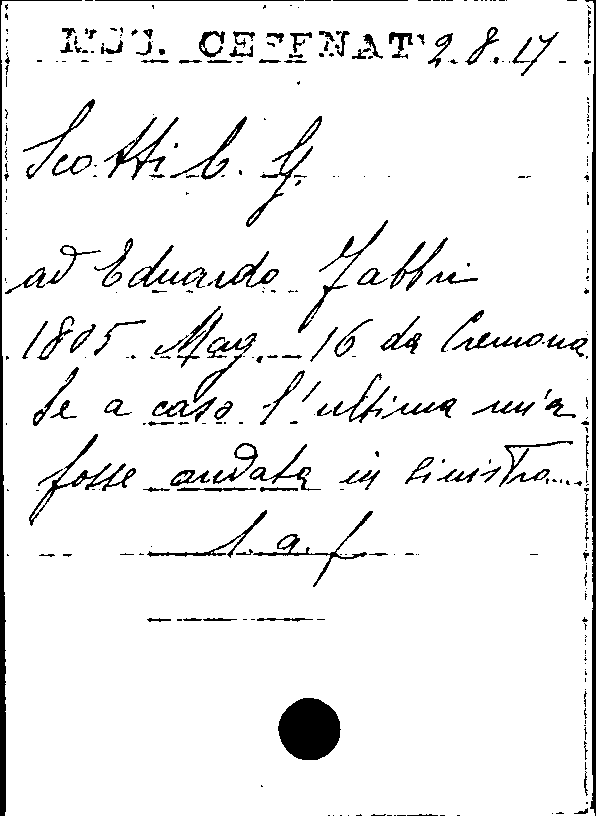 MSS. CEFFNAT 2.8.17
Scotti C. G.
ad Eduardo Fabbri
1805 Mag. 16 da Cremona
Se a caso l'ultima mia
fosse andata in sinistro...
l. a. f